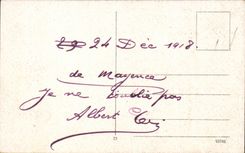 24 Déc 1918.
de Mayence
Je ne t'oublie pas
Albert